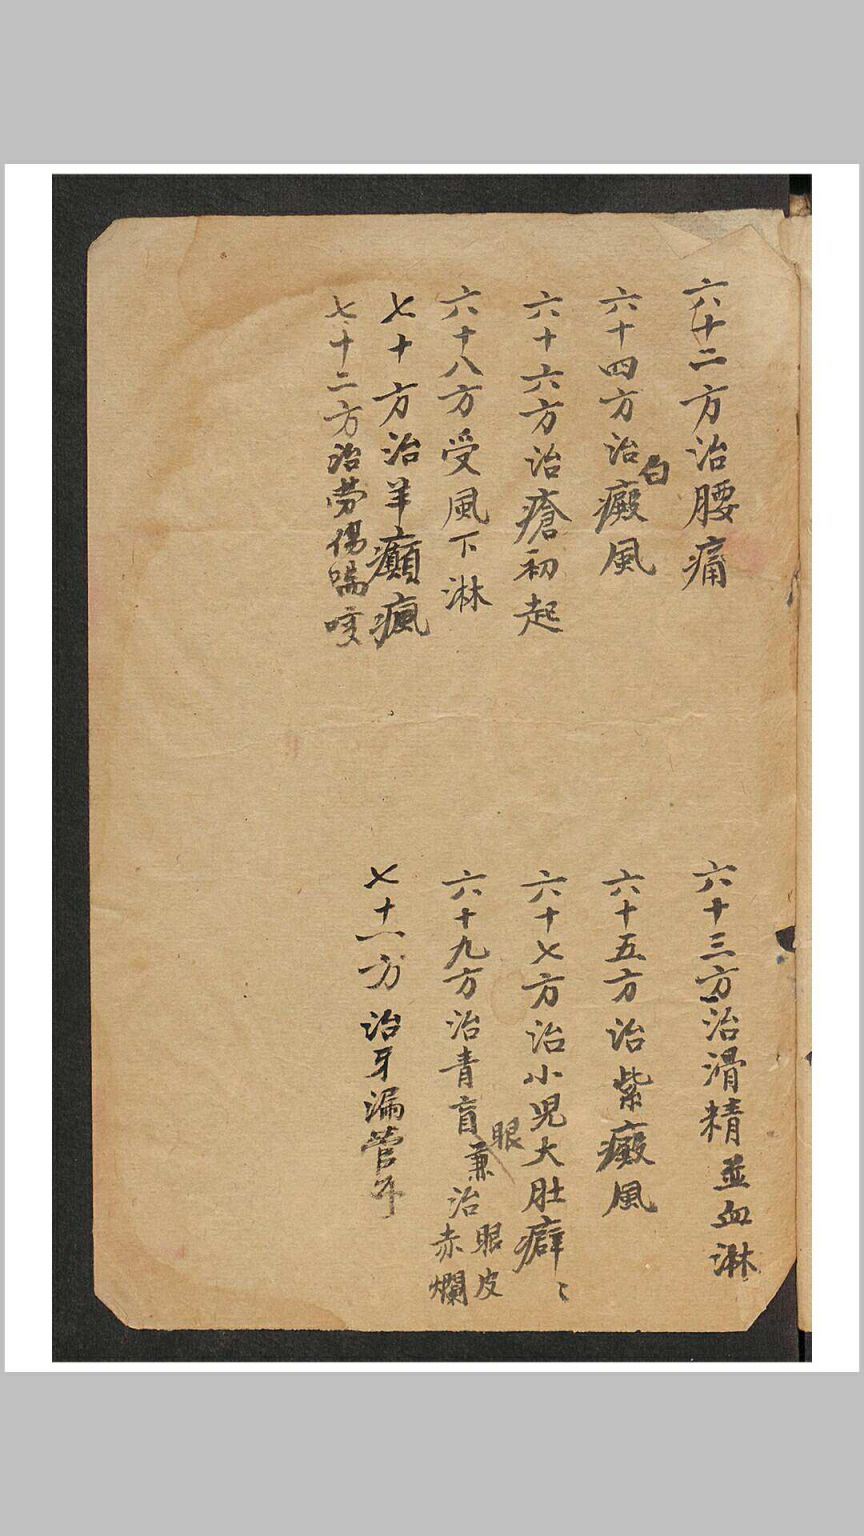 六十二方治腰痛
六十三方治滑精並血淋
六十四方治白癜風
六十五方治紫癜風
六十六方治瘡初起
六十七方治小児大肚癖
六十八方受風下淋
六十九方治青盲眼兼治眼皮赤爛
七十方治羊癲瘋
七十一方治牙漏管
七十二方治劳傷喘咳